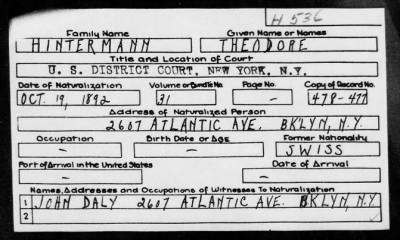 H 536
Family Name Given Name or Names
HINTERMANN THEODORE
Title and Location of Court
U. S. DISTRICT COURT, NEW YORK, N.Y.
Date of Naturalization Volume or Bundle No. Page No. Copy of Record No.
OCT. 19, 1892 31 — 478-477
Address of Naturalized Person
2607 ATLANTIC AVE. BKLYN, N.Y.
Occupation Birth Date or Age Former Nationality
— SWISS
Port of Arrival in the United States Date of Arrival
— —
Names, Addresses and Occupations of Witnesses To Naturalization
1 JOHN DALY 2607 ATLANTIC AVE. BKLYN, N.Y.
2